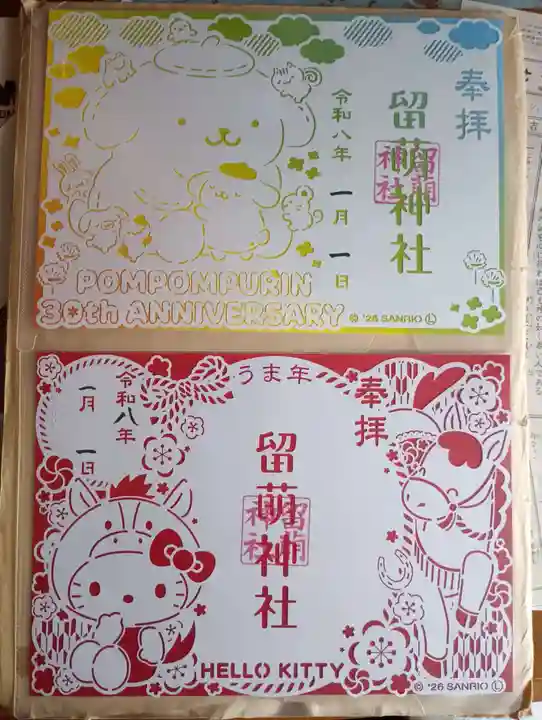 奉拝
留萌神社
令和八年 一月 一日
POMPOMPURIN
30th ANNIVERSARY
© '26 SANRIO Ⓛ
うま年
奉拝
留萌神社
令和八年
一月 一日
HELLO KITTY
© '26 SANRIO Ⓛ